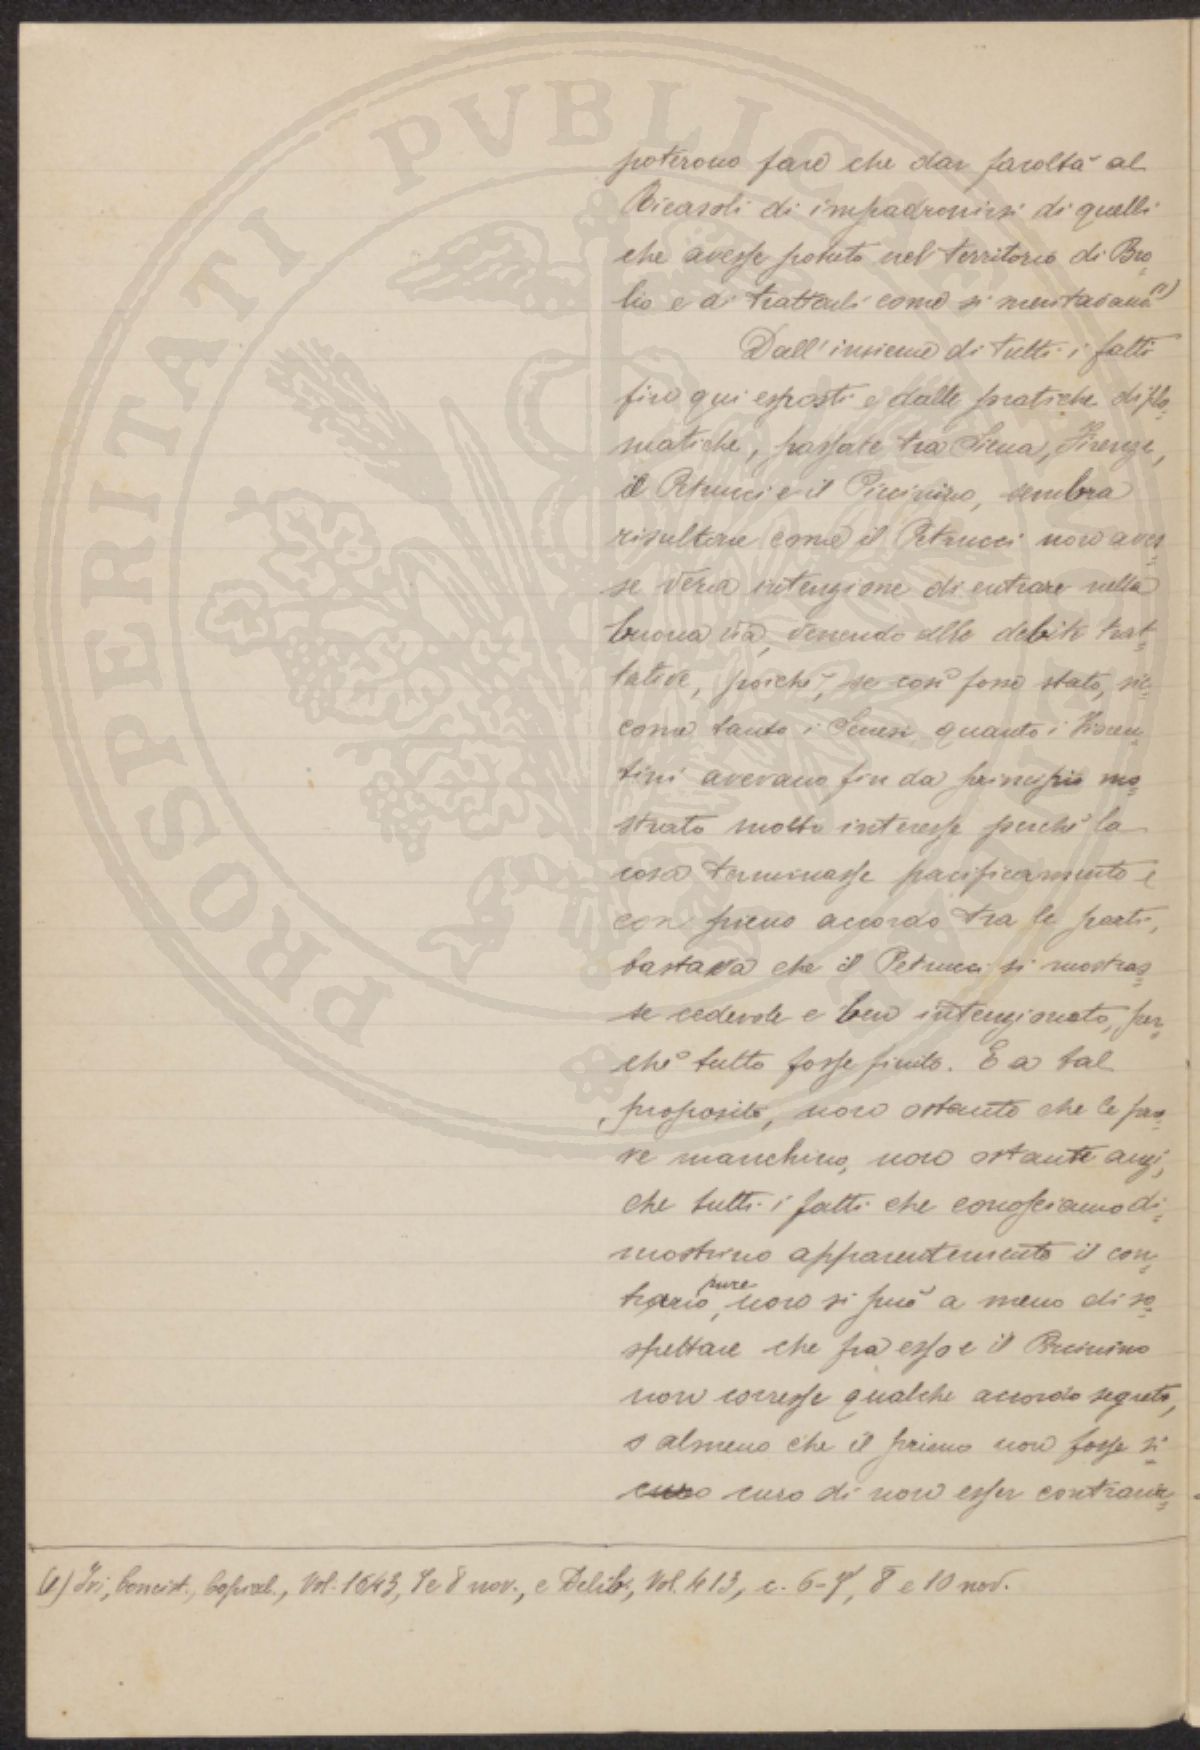 poterono fare che dar facoltà al
Ricasoli di impadronirsi di quelli
che avesse potuto nel territorio di Bro=
lio e di trattarli come si meritavano (1)
Dall'insieme di tutti i fatti
fin qui esposti e dalle pratiche diplo=
matiche, passate tra Siena, Firenze,
il Petrucci e il Piccinino, sembra
risultare come il Petrucci non aves=
se vera intenzione di entrare nella
buona via, venendo alle debite trat=
tative, poichè, se così fosse stato, sic=
come tanto i Senesi quanto i Fioren=
tini avevano fin da principio mo=
strato molto interesse perchè la
cosa terminasse pacificamente e
con pieno accordo tra le parti,
bastava che il Petrucci si mostras=
se cedevole e ben intenzionato, per=
chè tutto fosse finito. E a tal
proposito, non ostante che le pro=
ve manchino, non ostante anzi,
che tutti i fatti che conosciamo di=
mostrino apparentemente il con=
trario, pure non si può a meno di so=
spettare che fra esso e il Piccinino
non corresse qualche accordo segreto,
o almeno che il primo non fosse si=
curo curo di non esser contrariа=
(1) Ivi, Concist., Copial., Vol. 1643, 7 e 8 nov., e Delib., Vol. 413, c. 6-7, 8 e 10 nov.
PROSPERITATI PVBLICAE